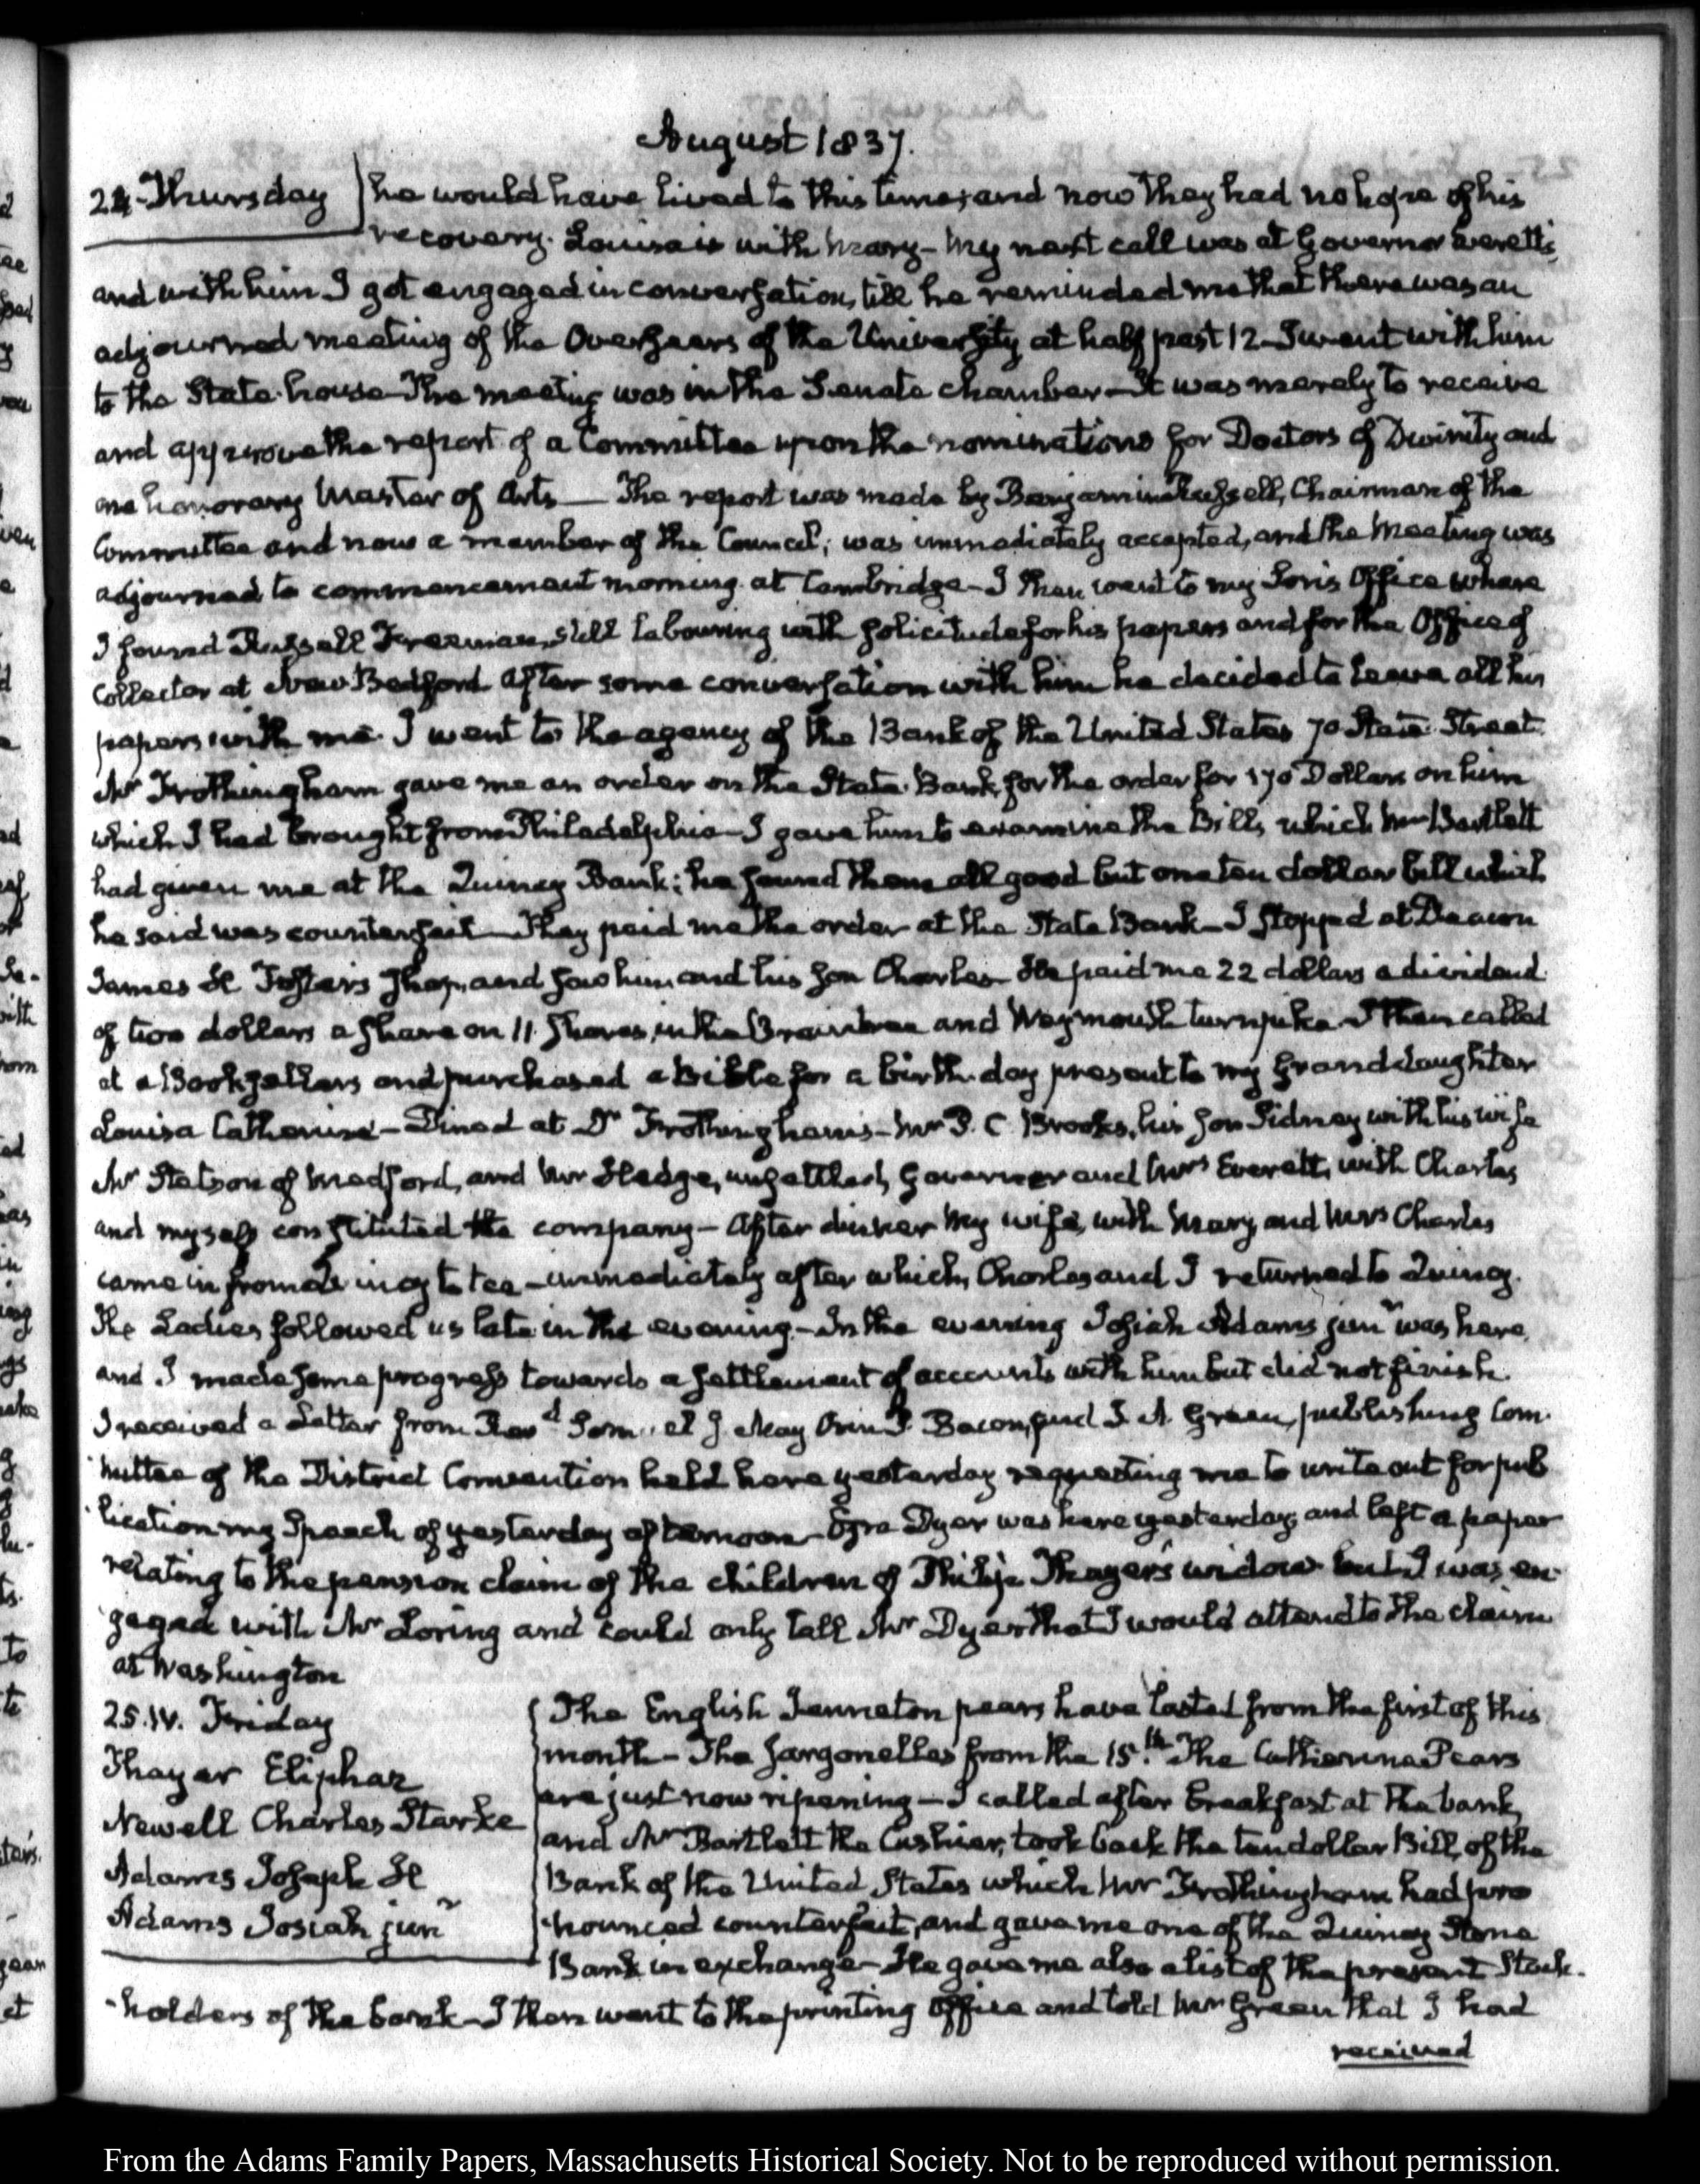 August 1837.
24. Thursday he would have lived to this time; and now they had no hope of his
recovery. Louisa is with Mary - My next call was at Governor Everett's,
and with him I got engaged in conversation, till he reminded me that there was an
adjourned meeting of the Overseers of the University at half past 12 - I went with him
to the State-house - The meeting was in the Senate chamber - It was merely to receive
and approve the report of a Committee upon the nominations for Doctors of Divinity and
one honorary Master of Arts - The report was made by Benjamin Russell, Chairman of the
Committee and now a member of the Council; was immediately accepted, and the Meeting was
adjourned to commencement morning at Cambridge - I then went to my Son's Office where
I found Russell Freeman, still labouring with solicitude for his papers and for the Office of
Collector at New Bedford. After some conversation with him he decided to leave all his
papers with me. I went to the agency of the Bank of the United States 70 State Street.
Mr Frothingham gave me an order on the State Bank, for the order for 170 Dollars on him
which I had brought from Philadelphia - I gave him to examine the Bills, which Mr Bartlett
had given me at the Quincy Bank; he found them all good but one ten dollar bill which
he said was counterfeit - They paid me the order at the State Bank - I stopped at Deacon
James H Foster's shop, and saw him, and his son Charles - He paid me 22 dollars a dividend
of two dollars a share on 11 shares, in the Braintree and Weymouth turnpike - I then called
at a Bookseller's and purchased a Bible for a birth-day present to my Granddaughter
Louisa Catherine - Dined at Dr Frothingham's - Mr P. C Brooks, his son Sidney with his wife
Mr Stetson of Medford, and Mr Hedge, unsettled, Governor and Mrs Everett, with Charles
and myself constituted the company - After dinner my wife, with Mary, and Mrs Charles
came in from Quincy to tea - immediately after which, Charles and I returned to Quincy.
The Ladies followed us late in the evening - In the evening Josiah Adams junr was here,
and I made some progress towards a settlement of accounts with him but did not finish.
I received a Letter from Revd Samuel J. May Orin P. Bacon, and J. A. Green, publishing Com-
mittee of the District Convention held here yesterday requesting me to write out for pub
lication my Speech of yesterday afternoon - Ezra Dyer was here yesterday, and left a paper
relating to the pension claim of the children of Philip Thayer's widow but I was en-
gaged with Mr Loring and could only tell Mr Dyer that I would attend to the claim
at Washington
25. IV. Friday
Thayer Eliphaz
Newell Charles Starke
Adams Joseph H
Adams Josiah junr
The English Jenneton pears have lasted from the first of this
month - The Jargonelles from the 15th. The Catherine Pears
are just now ripening - I called after breakfast at the bank,
and Mr Bartlett the Cashier, took back the ten dollar Bill, of the
Bank of the United States which Mr Frothingham had pro
nounced counterfeit, and gave me one of the Quincy Stone
Bank in exchange - He gave me also a list of the present Stock-
holders of the bank - I then went to the printing Office and told Mr Green that I had
received
From the Adams Family Papers, Massachusetts Historical Society. Not to be reproduced without permission.